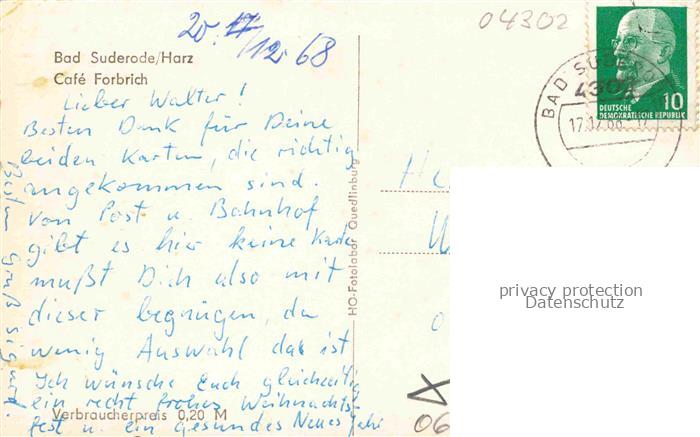 20. 17/12 68
04302
Bad Suderode/Harz
Café Forbrich
Lieber Walter!
Besten Dank für Deine
beiden Karten, die richtig
angekommen sind.
Von Post u. Bahnhof
gibt es hier keine Karte
mußt Dich also mit
dieser begnügen, da
wenig Auswahl da ist
Ich wünsche Euch gleichzeitig
ein recht frohes Weihnachts
fest u. ein gesundes Neues Jahr
Verbraucherpreis 0,20 M
Gruß
HO-Fotolabor Quedlinburg
BAD SUDERO
4304
17.12.68
10
DEUTSCHE
DEMOKRATISCHE REPUBLIK
He
W
privacy protection
Datenschutz
06